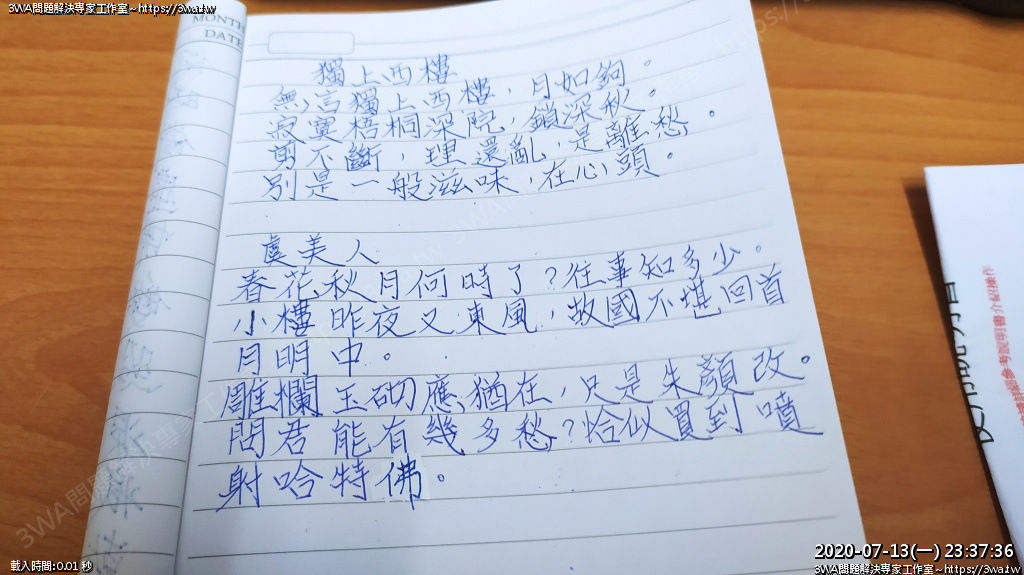 3WA問題解決專家工作室~https://3wa.tw
MONTH
DATE
獨上西樓
無言獨上西樓，月如鉤。
寂寞梧桐深院，鎖深秋。
剪不斷，理還亂，是離愁。
別是一般滋味，在心頭。
虞美人
春花秋月何時了？往事知多少。
小樓昨夜又東風，故國不堪回首
月明中。
雕欄玉砌應猶在，只是朱顏改。
問君能有幾多愁？恰似買到噴
射哈特佛。
載入時間:0.01 秒
2020-07-13(一) 23:37:36
3WA問題解決專家工作室~https://3wa.tw